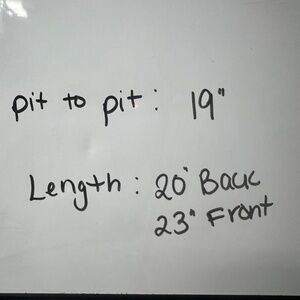 pit to pit: 19"
Length: 20" Back
23" Front